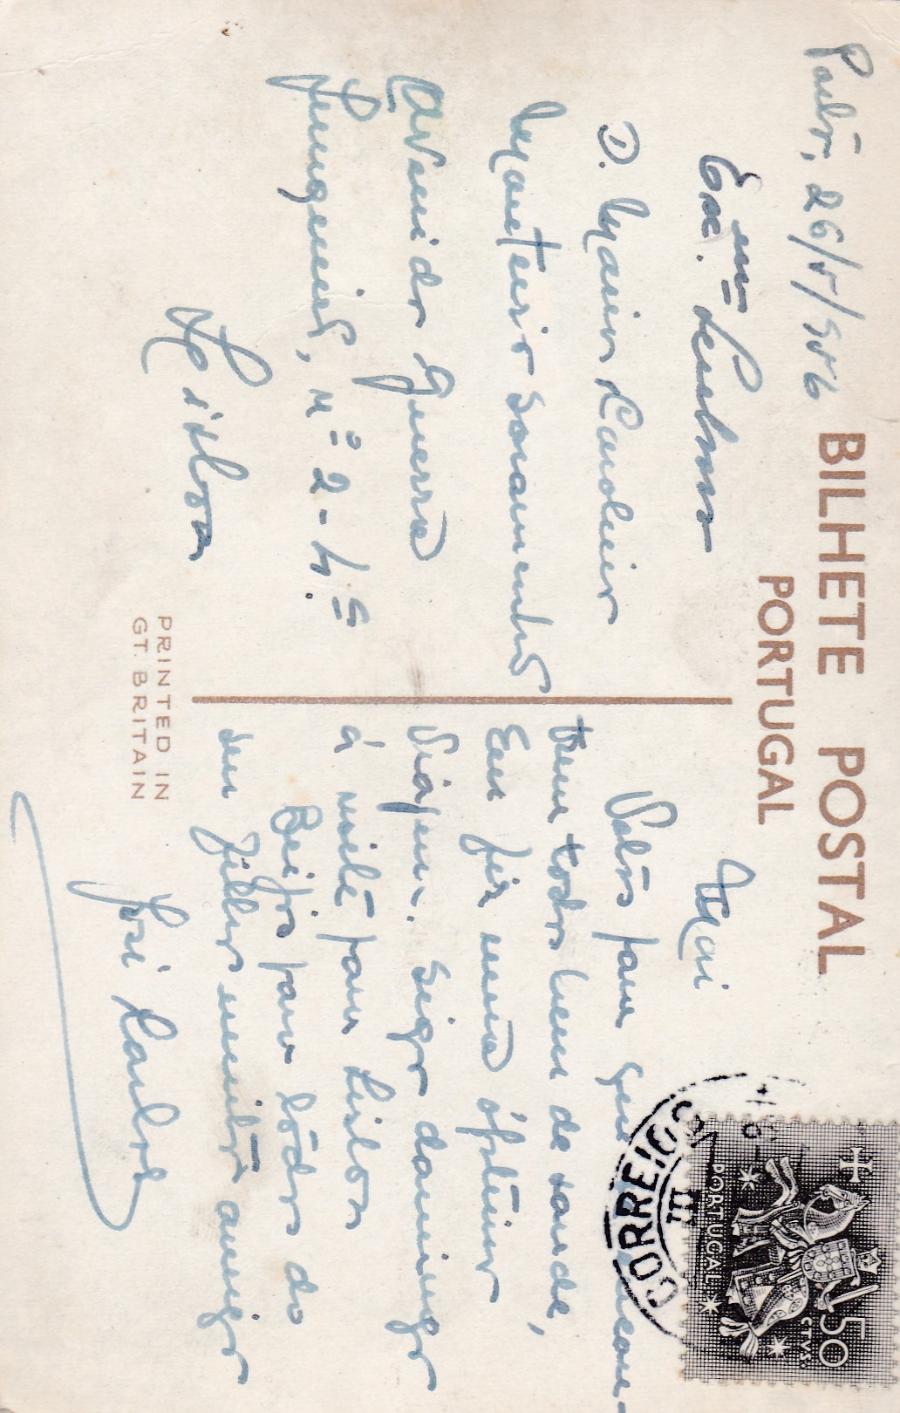 BILHETE POSTAL
PORTUGAL
26/5/956
Exc.ma Senhora
D. Maria
Monteiro
Avenida Guerra
Junqueiro, nº 2 - 4.º
Lisboa
PRINTED IN
GT. BRITAIN
Mãi
Votos para que
bem todos bem de saude,
Eu fiz uma óptima
viajem. Sigo domingo
á noite para Lisboa
Beijos para todos do
seu filho muito amigo
José Carlos
CORREIOS
PORTUGAL
50
CTVS.